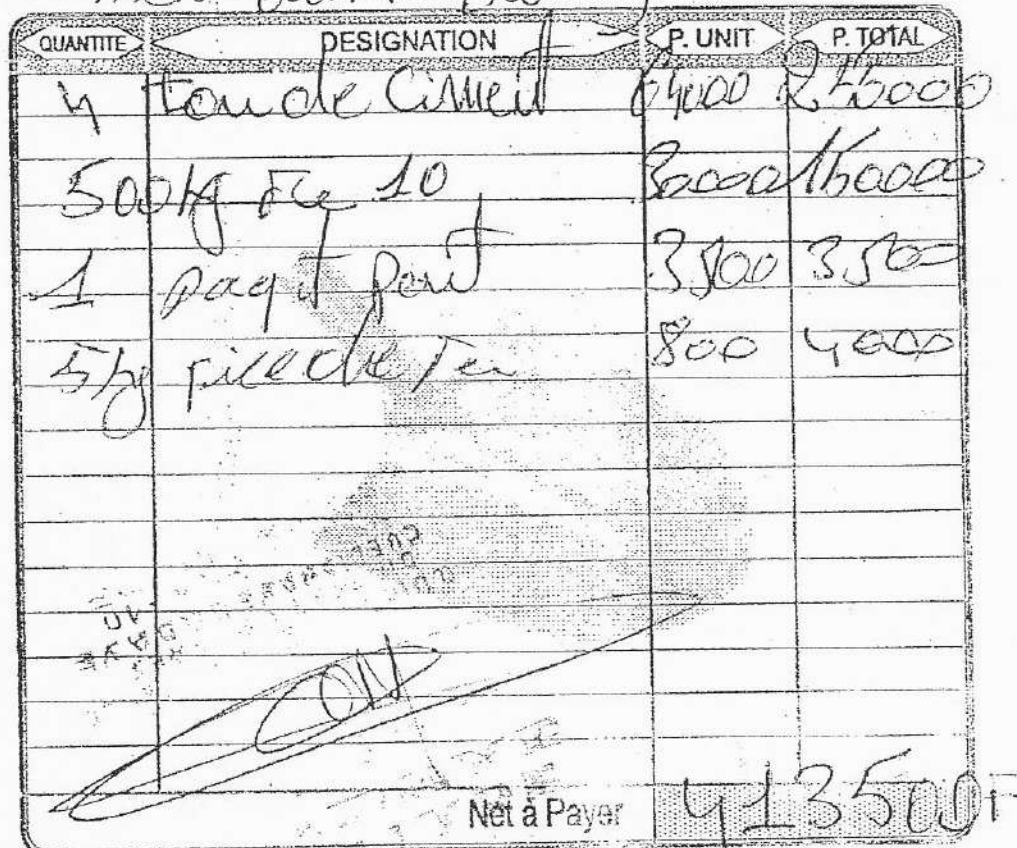 QUANTITE DESIGNATION P. UNIT P. TOTAL
4 ton de Ciment 64000 256000
500kg Fer 10 30000 150000
1 paqt 3500 3500
5kg de Fer 800 4000
Net à Payer 413500F